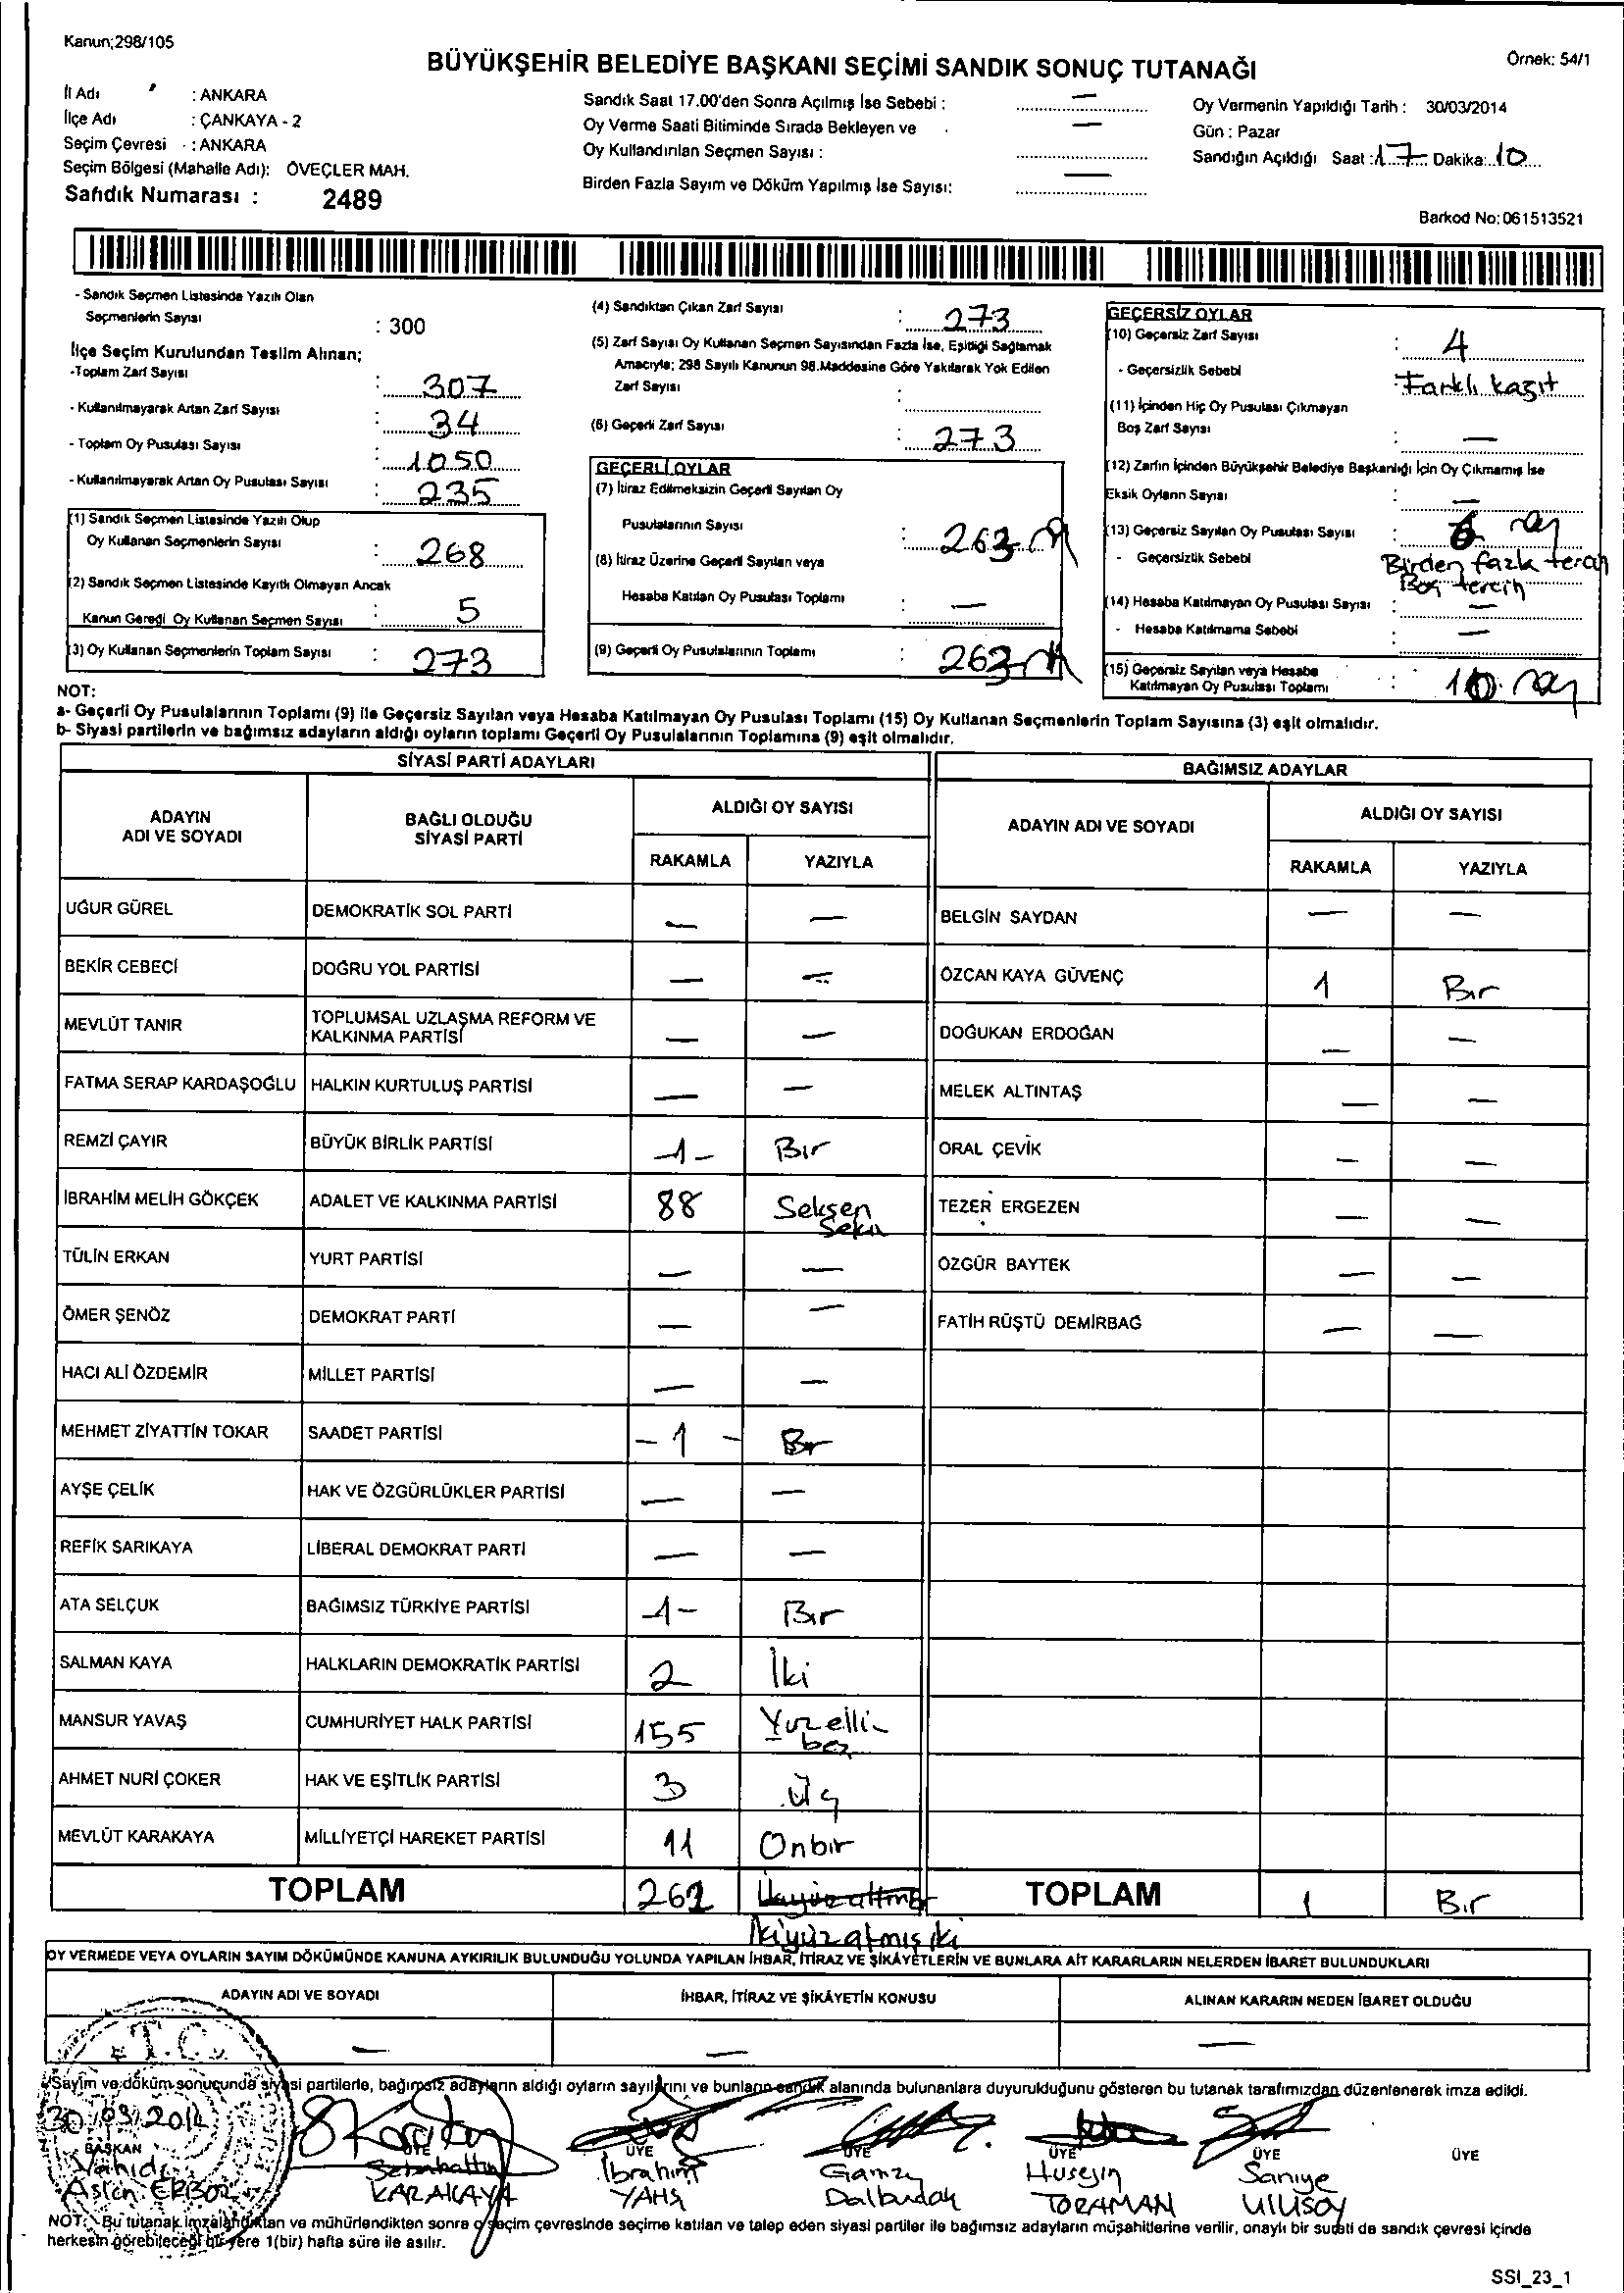 Kanun;298/105
BÜYÜKŞEHİR BELEDİYE BAŞKANI SEÇİMİ SANDIK SONUÇ TUTANAĞI
Örnek: 54/1
İl Adı : ANKARA
İlçe Adı : ÇANKAYA - 2
Seçim Çevresi : ANKARA
Seçim Bölgesi (Mahalle Adı): ÖVEÇLER MAH.
Sandık Numarası : 2489
Sandık Saat 17.00'den Sonra Açılmış İse Sebebi : —
Oy Verme Saati Bitiminde Sırada Bekleyen ve
Oy Kullandırılan Seçmen Sayısı : —
Birden Fazla Sayım ve Döküm Yapılmış İse Sayısı: —
Oy Vermenin Yapıldığı Tarih : 30/03/2014
Gün : Pazar
Sandığın Açıldığı Saat : 17 Dakika: 10
Barkod No: 061513521
- Sandık Seçmen Listesinde Yazılı Olan
Seçmenlerin Sayısı : 300
İlçe Seçim Kurulundan Teslim Alınan;
-Toplam Zarf Sayısı : 307
- Kullanılmayarak Artan Zarf Sayısı : 34
- Toplam Oy Pusulası Sayısı : 1050
- Kullanılmayarak Artan Oy Pusulası Sayısı : 235
(1) Sandık Seçmen Listesinde Yazılı Olup
Oy Kullanan Seçmenlerin Sayısı : 268
(2) Sandık Seçmen Listesinde Kayıtlı Olmayan Ancak
Kanun Gereği Oy Kullanan Seçmen Sayısı : 5
(3) Oy Kullanan Seçmenlerin Toplam Sayısı : 273
(4) Sandıktan Çıkan Zarf Sayısı : 273
(5) Zarf Sayısı Oy Kullanan Seçmen Sayısından Fazla İse, Eşitliği Sağlamak
Amacıyla; 298 Sayılı Kanunun 98.Maddesine Göre Yakılarak Yok Edilen
Zarf Sayısı :
(6) Geçerli Zarf Sayısı : 273
GEÇERLİ OYLAR
(7) İtiraz Edilmeksizin Geçerli Sayılan Oy
Pusulalarının Sayısı : 263
(8) İtiraz Üzerine Geçerli Sayılan veya
Hesaba Katılan Oy Pusulası Toplamı : —
(9) Geçerli Oy Pusulalarının Toplamı : 263
GEÇERSİZ OYLAR
(10) Geçersiz Zarf Sayısı : 4
- Geçersizlik Sebebi : Farklı kağıt
(11) İçinden Hiç Oy Pusulası Çıkmayan
Boş Zarf Sayısı : —
(12) Zarfın İçinden Büyükşehir Belediye Başkanlığı İçin Oy Çıkmamış İse
Eksik Oyların Sayısı : —
(13) Geçersiz Sayılan Oy Pusulası Sayısı : 6
- Geçersizlik Sebebi Birden fazla tercih
Boş tercih
(14) Hesaba Katılmayan Oy Pusulası Sayısı : —
- Hesaba Katılmama Sebebi : —
(15) Geçersiz Sayılan veya Hesaba
Katılmayan Oy Pusulası Toplamı : 10
NOT:
a- Geçerli Oy Pusulalarının Toplamı (9) ile Geçersiz Sayılan veya Hesaba Katılmayan Oy Pusulası Toplamı (15) Oy Kullanan Seçmenlerin Toplam Sayısına (3) eşit olmalıdır.
b- Siyasi partilerin ve bağımsız adayların aldığı oyların toplamı Geçerli Oy Pusulalarının Toplamına (9) eşit olmalıdır.
SİYASİ PARTİ ADAYLARI BAĞIMSIZ ADAYLAR
ADAYIN ADI VE SOYADI BAĞLI OLDUĞU SİYASİ PARTİ ALDIĞI OY SAYISI ADAYIN ADI VE SOYADI ALDIĞI OY SAYISI
RAKAMLA YAZIYLA RAKAMLA YAZIYLA
UĞUR GÜREL DEMOKRATİK SOL PARTİ — — BELGİN SAYDAN — —
BEKİR CEBECİ DOĞRU YOL PARTİSİ — — ÖZCAN KAYA GÜVENÇ 1 Bir
MEVLÜT TANIR TOPLUMSAL UZLAŞMA REFORM VE KALKINMA PARTİSİ — — DOĞUKAN ERDOĞAN — —
FATMA SERAP KARDAŞOĞLU HALKIN KURTULUŞ PARTİSİ — — MELEK ALTINTAŞ — —
REMZİ ÇAYIR BÜYÜK BİRLİK PARTİSİ -1- Bir ORAL ÇEVİK — —
İBRAHİM MELİH GÖKÇEK ADALET VE KALKINMA PARTİSİ 88 Seksen Sekiz TEZER ERGEZEN — —
TÜLİN ERKAN YURT PARTİSİ — — ÖZGÜR BAYTEK — —
ÖMER ŞENÖZ DEMOKRAT PARTİ — — FATİH RÜŞTÜ DEMİRBAĞ — —
HACI ALİ ÖZDEMİR MİLLET PARTİSİ — —
MEHMET ZİYATTİN TOKAR SAADET PARTİSİ - 1 - Bir
AYŞE ÇELİK HAK VE ÖZGÜRLÜKLER PARTİSİ — —
REFİK SARIKAYA LİBERAL DEMOKRAT PARTİ — —
ATA SELÇUK BAĞIMSIZ TÜRKİYE PARTİSİ -1- Bir
SALMAN KAYA HALKLARIN DEMOKRATİK PARTİSİ 2 İki
MANSUR YAVAŞ CUMHURİYET HALK PARTİSİ 155 Yüzelli beş
AHMET NURİ ÇOKER HAK VE EŞİTLİK PARTİSİ 3 Üç
MEVLÜT KARAKAYA MİLLİYETÇİ HAREKET PARTİSİ 11 Onbir
TOPLAM 262 TOPLAM 1 Bir
İkiyüzatmış iki
OY VERMEDE VEYA OYLARIN SAYIM DÖKÜMÜNDE KANUNA AYKIRILIK BULUNDUĞU YOLUNDA YAPILAN İHBAR, İTİRAZ VE ŞİKÂYETLERİN VE BUNLARA AİT KARARLARIN NELERDEN İBARET BULUNDUKLARI
ADAYIN ADI VE SOYADI İHBAR, İTİRAZ VE ŞİKÂYETİN KONUSU ALINAN KARARIN NEDEN İBARET OLDUĞU
— — —
T.C.
Sayım ve döküm sonucunda siyasi partilerle, bağımsız adayların aldığı oyların sayılarını ve bunların sandık alanında bulunanlara duyurulduğunu gösteren bu tutanak tarafımızdan düzenlenerek imza edildi.
30/03/2014
BAŞKAN ÜYE ÜYE ÜYE ÜYE ÜYE ÜYE
Vahide Sebahattin İbrahim Gamze Huseyin Saniye
Aslan ERBOZ KARAKAYA YAHŞİ Dalbudak TORAMAN ULUSOY
NOT: Bu tutanak imzalandıktan ve mühürlendikten sonra o seçim çevresinde seçime katılan ve talep eden siyasi partiler ile bağımsız adayların müşahitlerine verilir, onaylı bir sureti de sandık çevresi içinde
herkesin görebileceği bir yere 1(bir) hafta süre ile asılır.
SSI_23_1